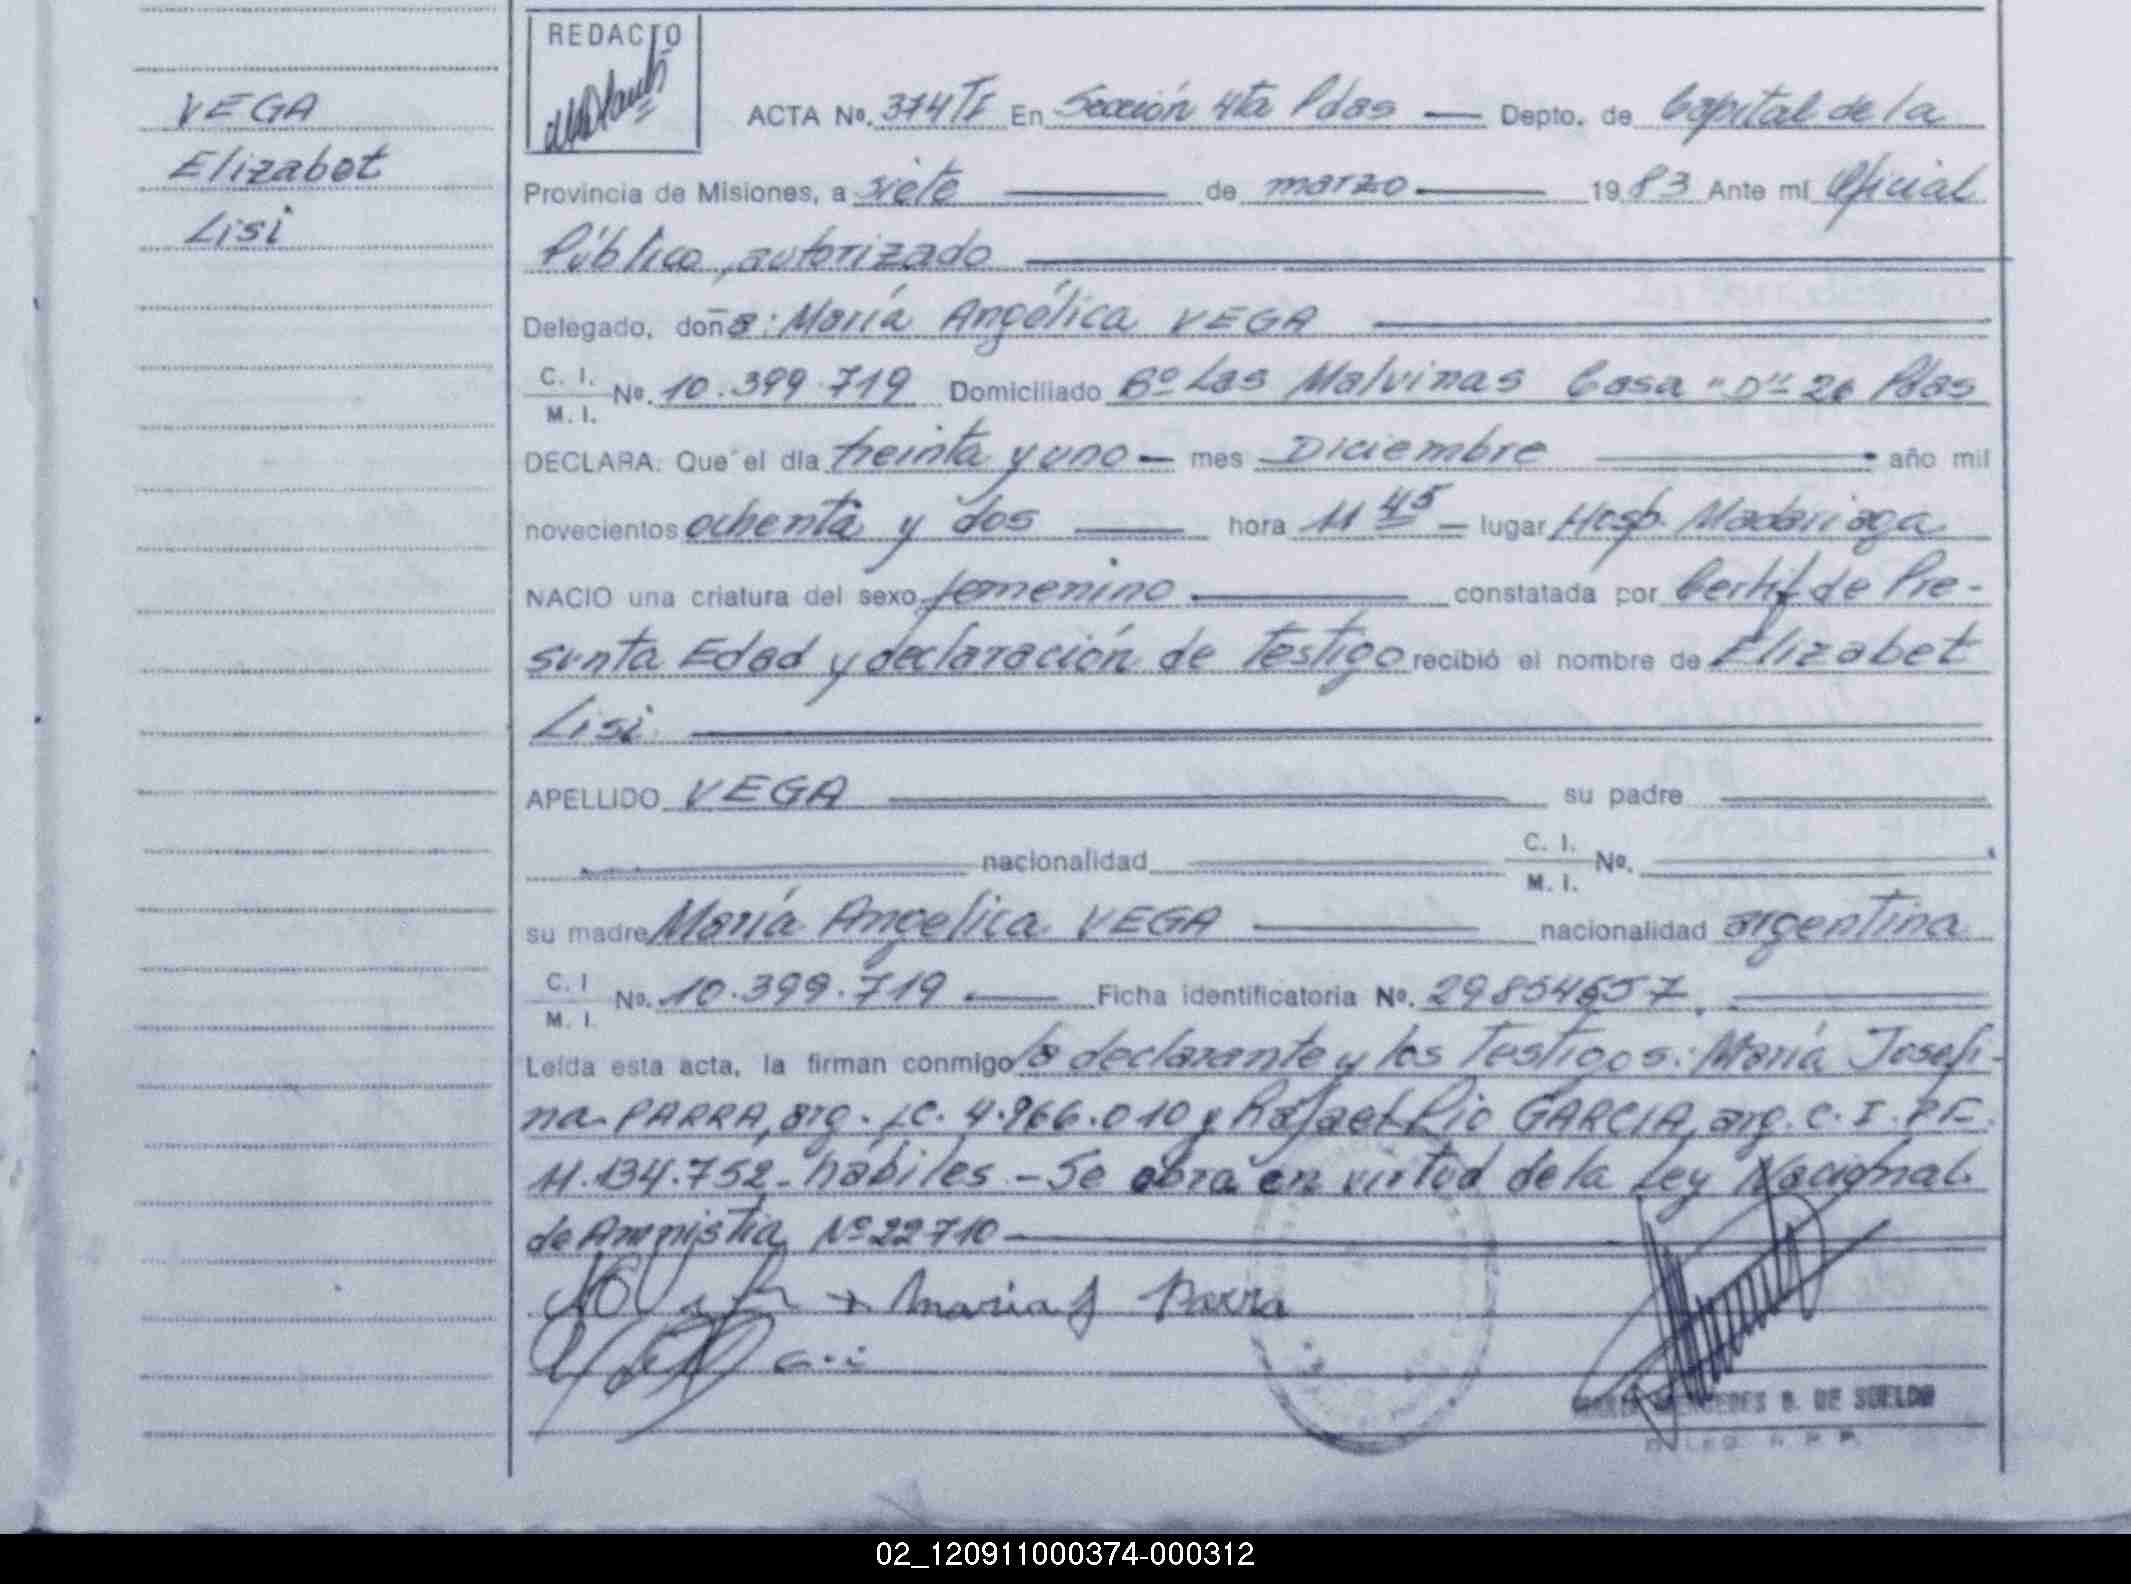 VEGA
Elizabet
Lisi
REDACTO
ACTA Nº. 374TI En Sección 4ta Pdas — Depto. de Capital de la
Provincia de Misiones, a siete de marzo 1983 Ante mí Oficial
Público, autorizado
Delegado, doña: María Angélica VEGA
C. I. M. I. Nº. 10.399.719 Domiciliado Bº Las Malvinas Casa "D" 26 Pdas
DECLARA: Que el día treinta y uno — mes Diciembre año mil
novecientos ochenta y dos hora 11 45 — lugar Hosp. Madariaga
NACIO una criatura del sexo femenino constatada por Certif de Pre-
sunta Edad y declaración de Testigo recibió el nombre de Elizabet
Lisi
APELLIDO VEGA su padre
nacionalidad C. I. M. I. Nº.
su madre María Angelica VEGA nacionalidad argentina
C. I M. I. Nº. 10.399.719 Ficha identificatoria Nº. 29854657
Leída esta acta, la firman conmigo la declarante y los Testigos: María Josefi-
na PARRA, arg. LC. 4.966.010 y Rafael Pio GARCIA, arg. C. I. P.F.
11.134.752 - hábiles - Se obra en virtud de la Ley Nacional
de Amnistia Nº 22710
Maria J Parra
MERCEDES B. DE SUELDO
02_120911000374-000312